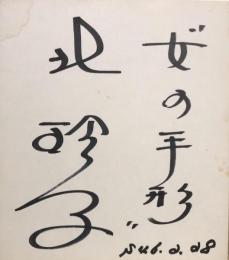 〝女の手形〟
北玲子
S46.2.28